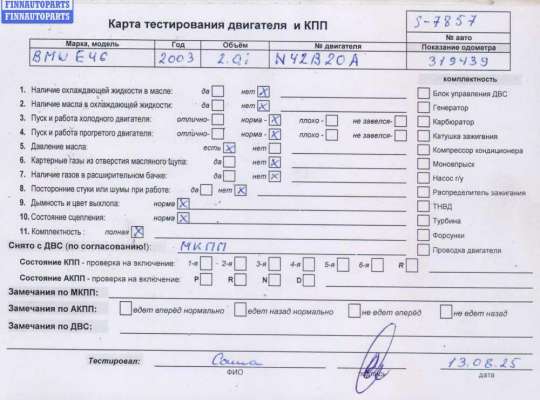 FINNAUTOPARTS
FINNAUTOPARTS
Карта тестирования двигателя и КПП
S-7857
№ авто
Марка, модель Год Объём № двигателя Показание одометра
BMW E46 2003 2.0i N42B20A 319439
комплектность
1. Наличие охлаждающей жидкости в масле: да нет X Блок управления ДВС
2. Наличие масла в охлаждающей жидкости: да нет X Генератор
3. Пуск и работа холодного двигателя: отлично- норма - X плохо - не завелся- Карбюратор
4. Пуск и работа прогретого двигателя: отлично- норма - X плохо - не завелся- Катушка зажигания
5. Давление масла: есть X нет Компрессор кондиционера
6. Картерные газы из отверстия масляного щупа: да нет X Моновпрыск
7. Наличие газов в расширительном бачке: да нет X Насос г/у
8. Посторонние стуки или шумы при работе: да нет X Распределитель зажигания
9. Дымность и цвет выхлопа: норма X ТНВД
10. Состояние сцепления: норма X Турбина
11. Комплектность : полная X Форсунки
Снято с ДВС (по согласованию!): МКПП Проводка двигателя
Состояние КПП - проверка на включение: 1-я 2-я 3-я 4-я 5-я 6-я R
Состояние АКПП - проверка на включение: P R N D
Замечания по МКПП:
Замечания по АКПП: едет вперёд нормально едет назад нормально не едет вперёд не едет назад
Замечания по ДВС:
Тестировал: Саша 13.08.25
ФИО подпись дата